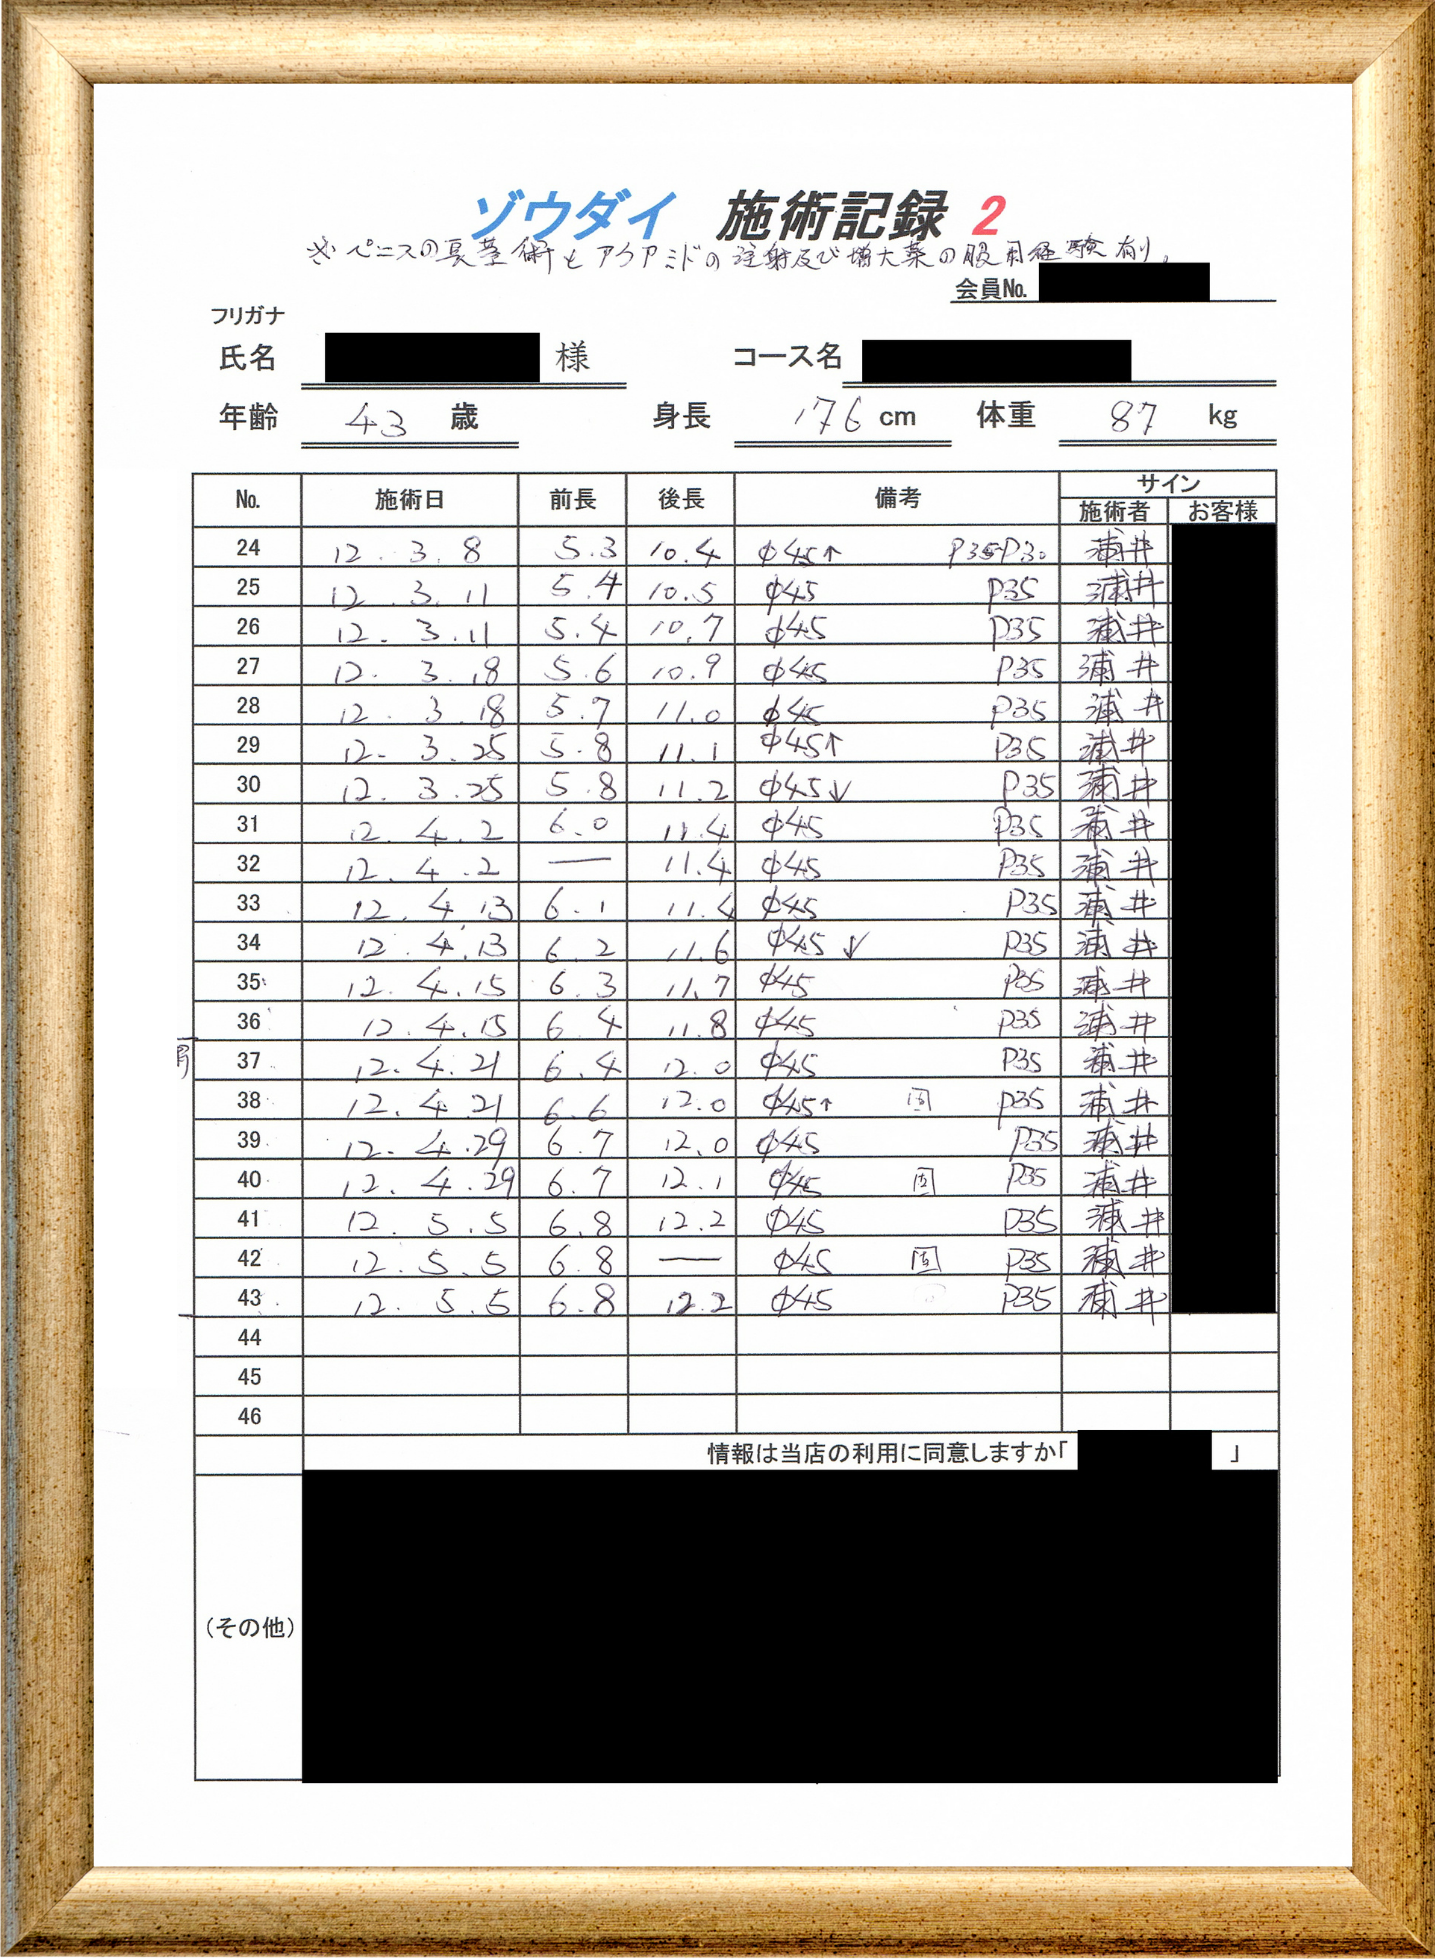 ゾウダイ 施術記録 2
※ペニスの長茎術とアクアミドの注射及び増大薬の服用経験有り。
会員No.
フリガナ
氏名 様 コース名
年齢 43 歳 身長 176 cm 体重 87 kg
No. 施術日 前長 後長 備考 サイン
施術者 お客様
24 12.3.8 5.3 10.4 φ45↑ P35-P30 浦井
25 12.3.11 5.4 10.5 φ45 P35 浦井
26 12.3.11 5.4 10.7 φ45 P35 浦井
27 12.3.18 5.6 10.9 φ45 P35 浦井
28 12.3.18 5.7 11.0 φ45 P35 浦井
29 12.3.25 5.8 11.1 φ45↑ P35 浦井
30 12.3.25 5.8 11.2 φ45↓ P35 浦井
31 12.4.2 6.0 11.4 φ45 P35 浦井
32 12.4.2 — 11.4 φ45 P35 浦井
33 12.4.13 6.1 11.4 φ45 P35 浦井
34 12.4.13 6.2 11.6 φ45↓ P35 浦井
35 12.4.15 6.3 11.7 φ45 P35 浦井
36 12.4.15 6.4 11.8 φ45 P35 浦井
37 12.4.21 6.4 12.0 φ45 P35 浦井
38 12.4.21 6.6 12.0 φ45↑ 固 P35 浦井
39 12.4.29 6.7 12.0 φ45 P35 浦井
40 12.4.29 6.7 12.1 φ45 固 P35 浦井
41 12.5.5 6.8 12.2 φ45 P35 浦井
42 12.5.5 6.8 — φ45 固 P35 浦井
43 12.5.5 6.8 12.2 φ45 P35 浦井
44
45
46
情報は当店の利用に同意しますか「 」
(その他)